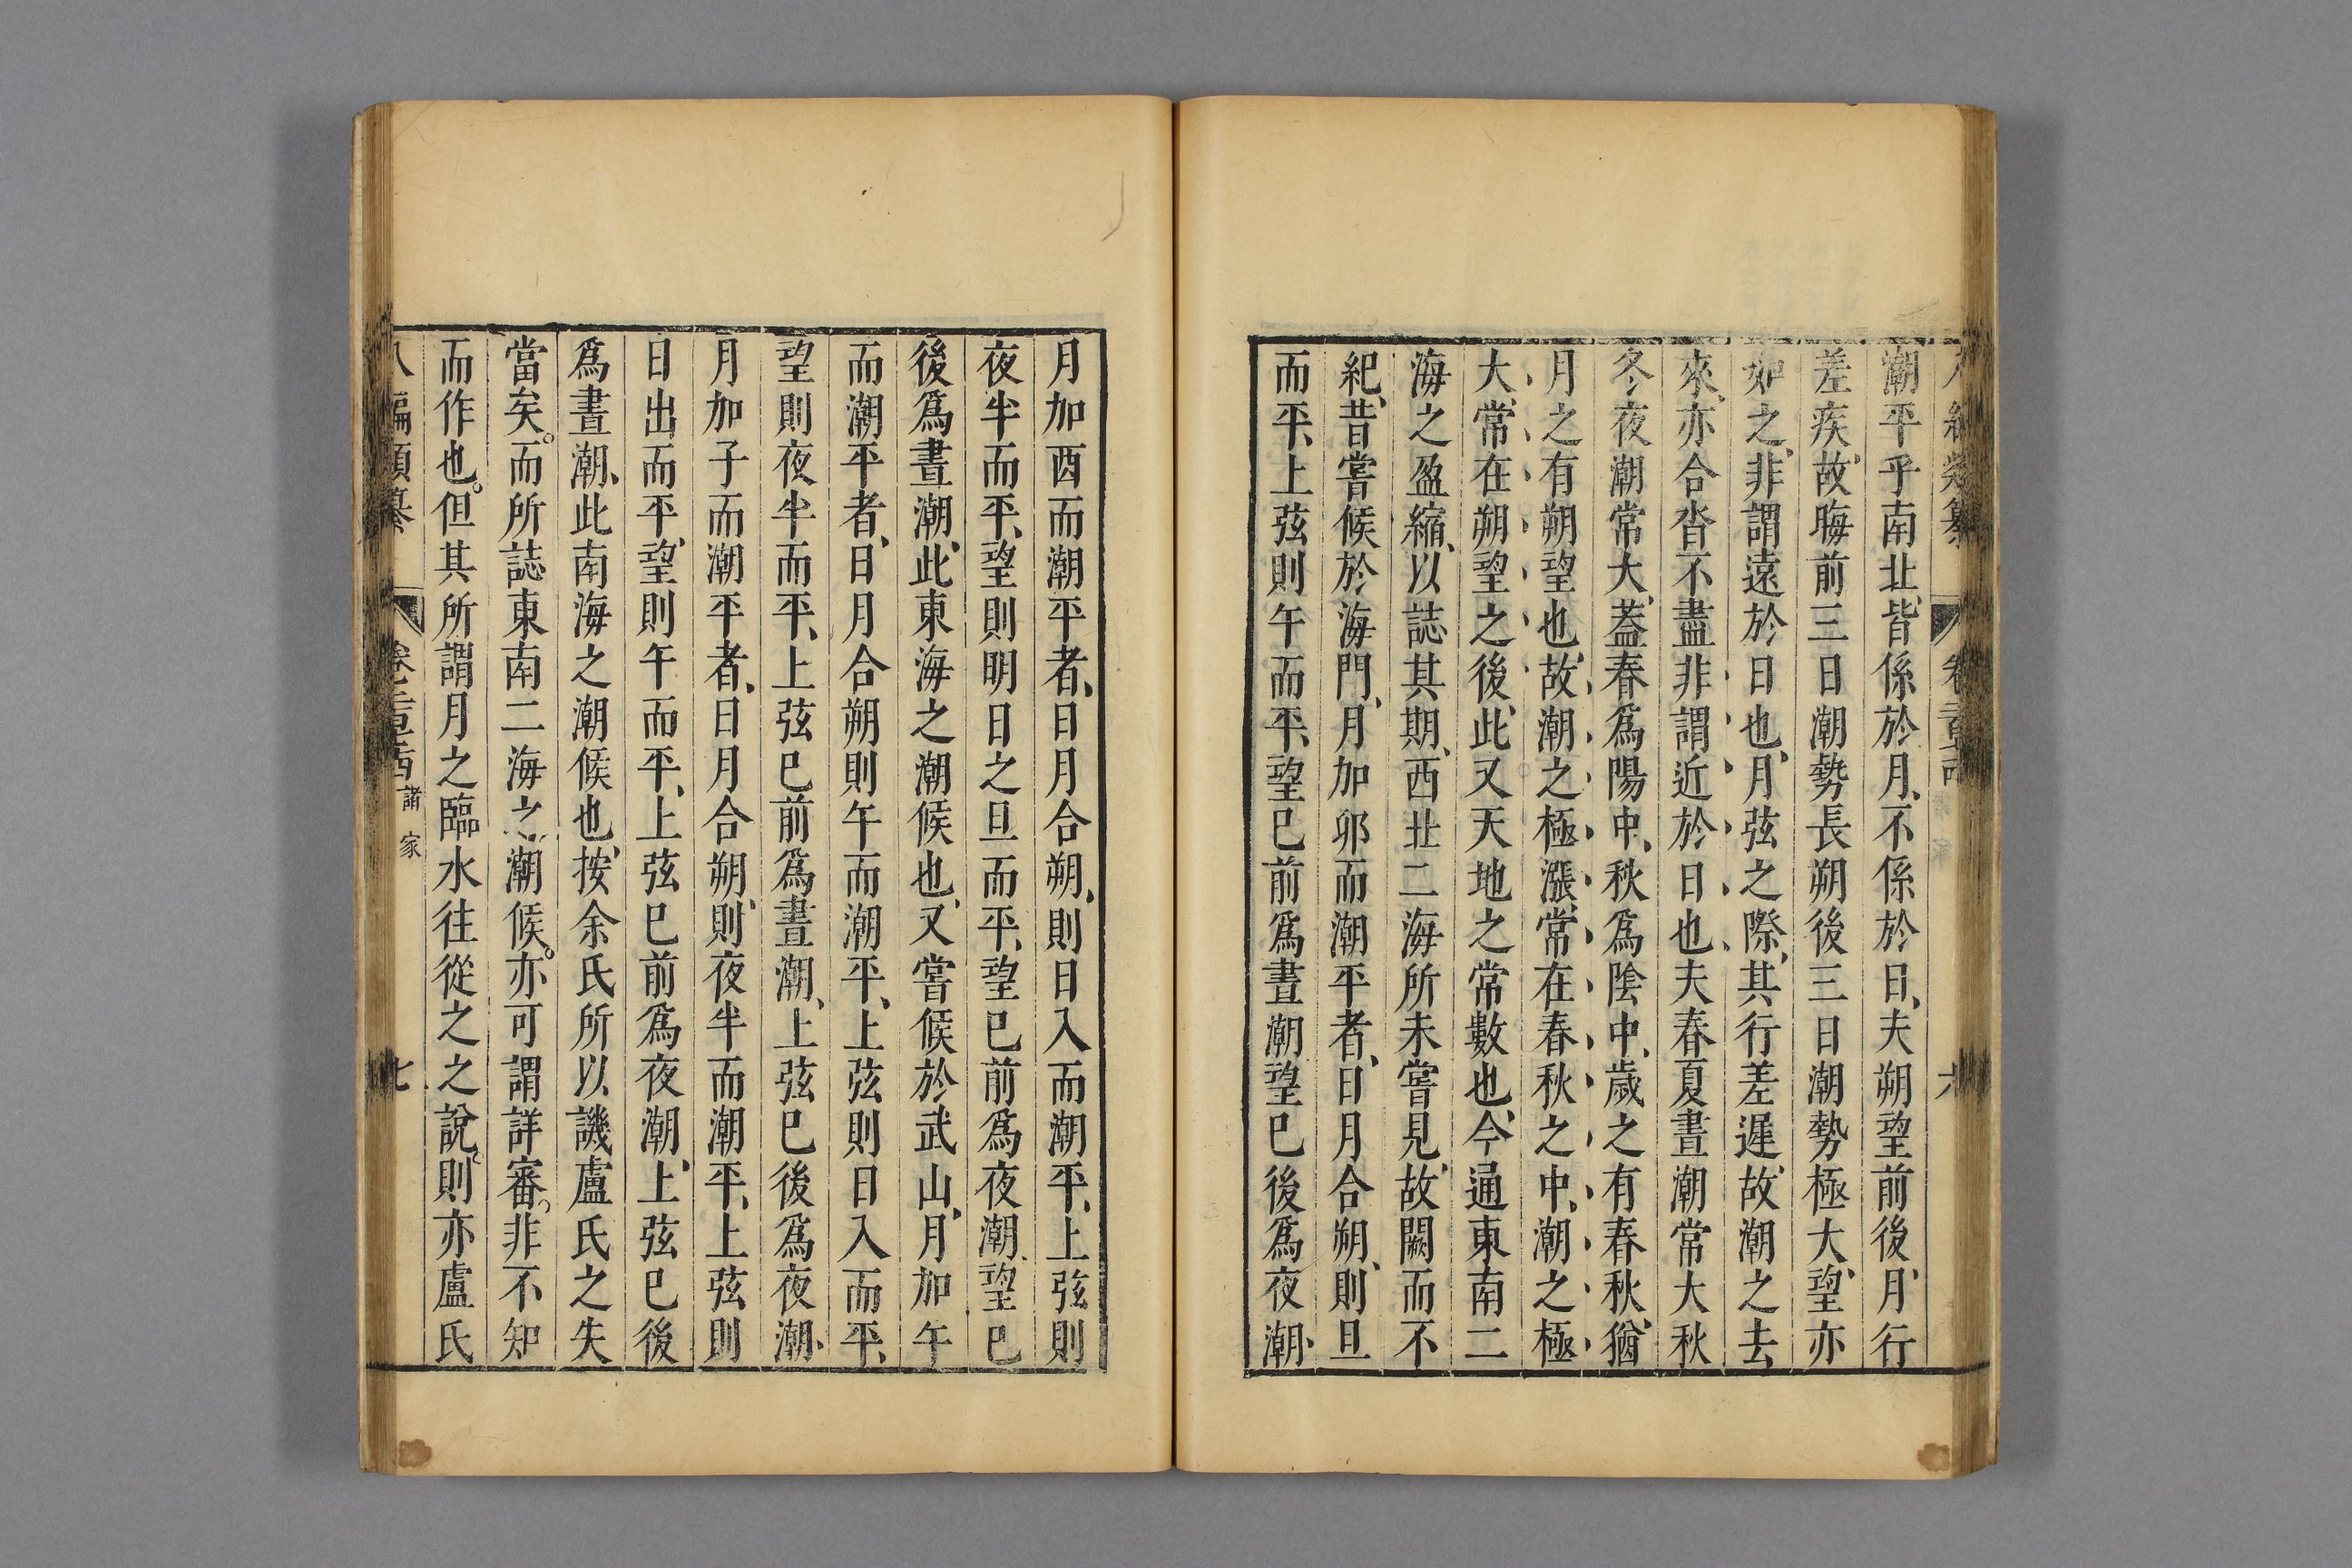 潮平乎南北、皆係於月、不係於日、夫朔望前後、月行
差疾、故晦前三日潮勢長朔後三日潮勢極大、望亦
如之、非謂遠於日也、月弦之際、其行差遲、故潮之去
來、亦合沓不盡非謂近於日也、夫春夏晝潮常大秋
冬夜潮常大、葢春爲陽中、秋爲陰中、歲之有春秋、猶
月之有朔望也、故潮之極漲、常在春秋之中、潮之極
大、常在朔望之後、此又天地之常數也、今通東南二
海之盈縮、以誌其期、西北二海所未嘗見、故闕而不
紀、昔嘗候於海門、月加卯而潮平者、日月合朔、則旦
而平、上弦則午而平、望已前爲晝潮望已後爲夜潮、
月加酉而潮平者、日月合朔、則日入而潮平、上弦則
夜半而平、望則明日之旦而平、望已前爲夜潮、望已
後爲晝潮、此東海之潮候也、又嘗候於武山、月加午
而潮平者、日月合朔則午而潮平、上弦則日入而平、
望則夜半而平、上弦已前爲晝潮、上弦已後爲夜潮、
月加子而潮平者、日月合朔、則夜半而潮平、上弦則
日出而平、望則午而平、上弦已前爲夜潮、上弦已後
爲晝潮、此南海之潮候也、按余氏所以譏盧氏之失
當矣。而所誌東南二海之潮候。亦可謂詳審。非不知
而作也。但其所謂月之臨水往從之之說、則亦盧氏
八編類纂 卷二百酉 諸家 七